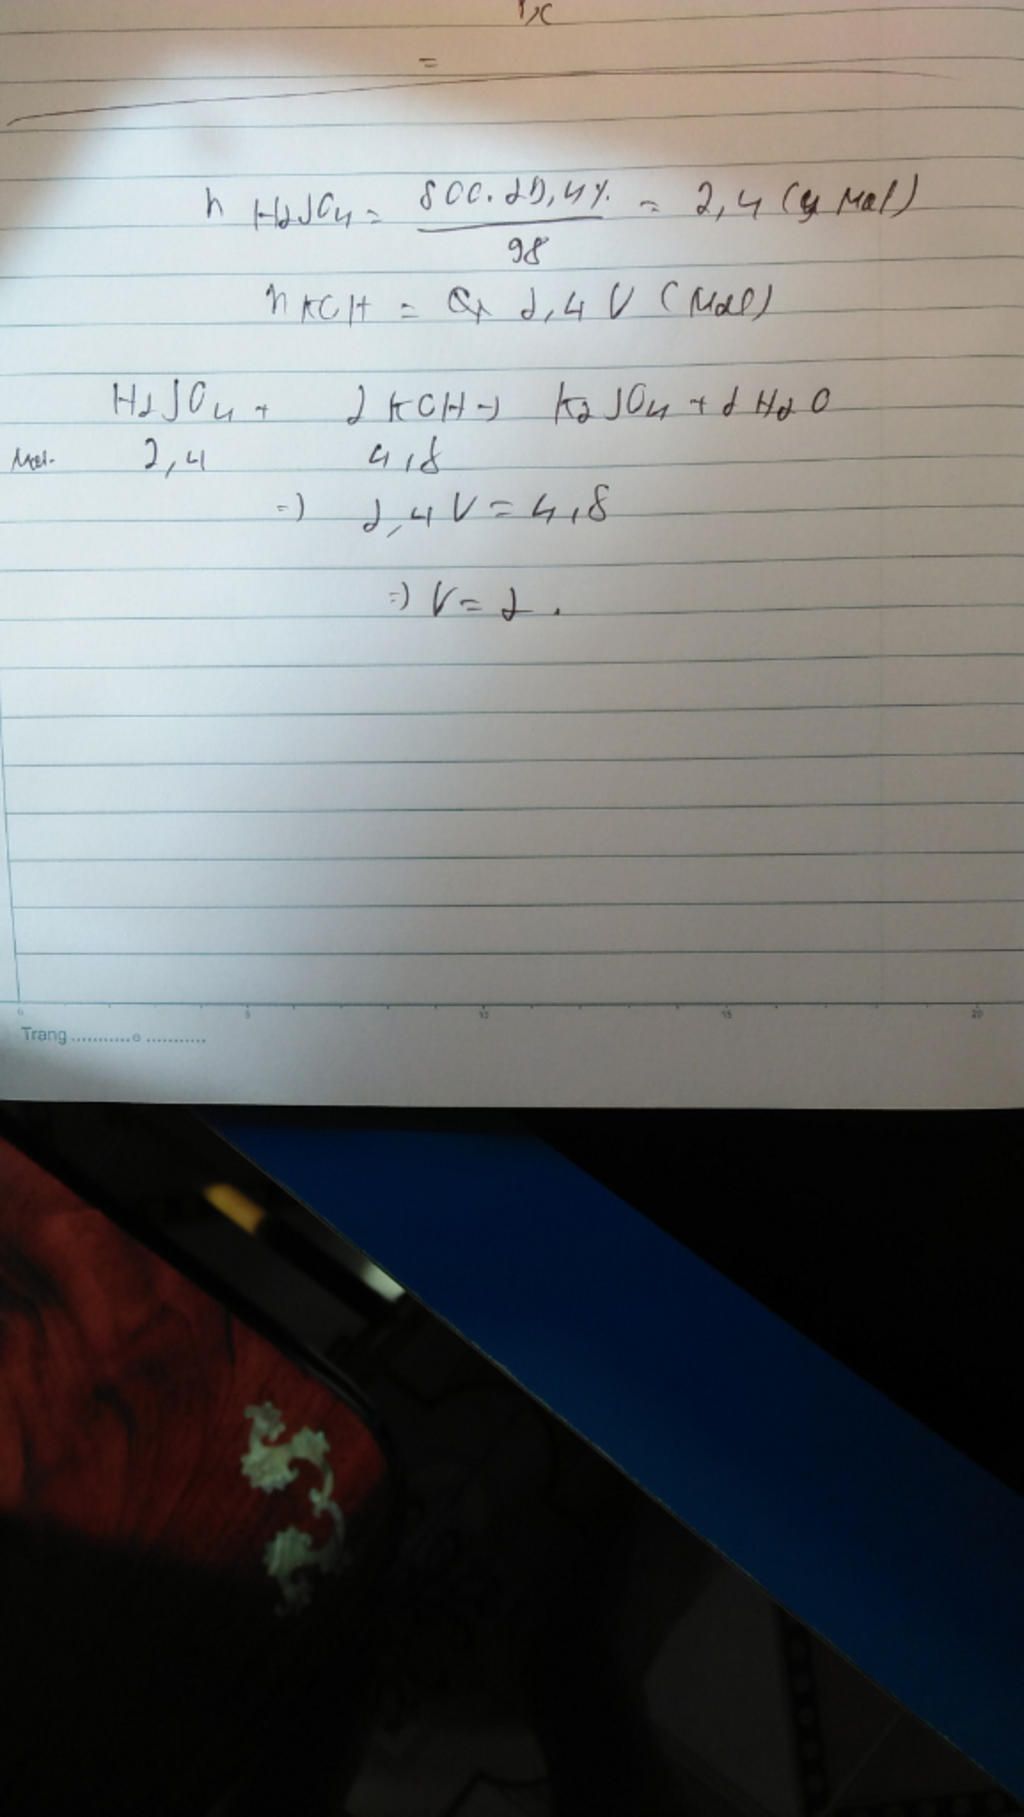 x
=
n H2SO4 = 800.29,4% / 98 = 2,4 (mol)
n KOH = 2,4 V (mol)
H2SO4 + 2KOH → K2SO4 + 2H2O
Mol. 2,4 4,8
=) 2,4 V = 4,8
=) V = 2.
0 5 10 15 20
Trang ...........o ...........